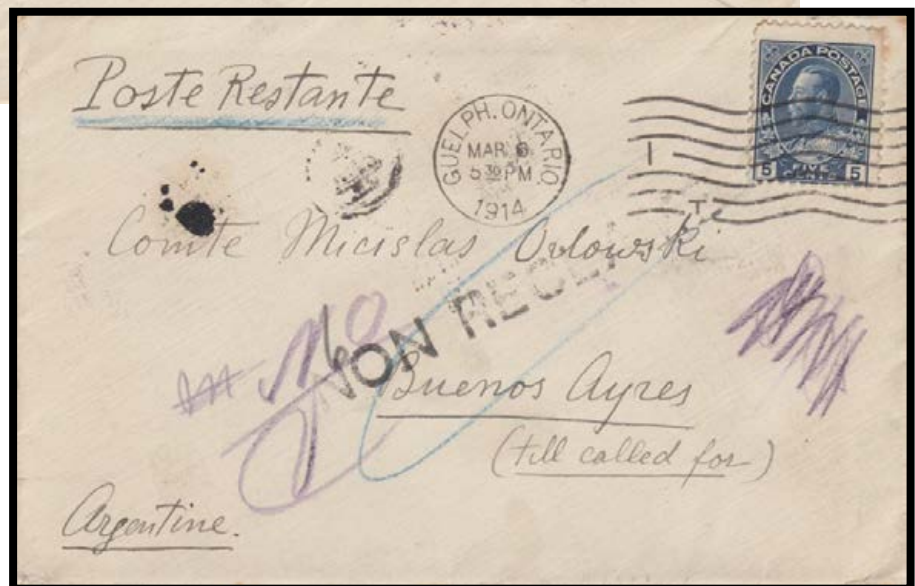 Poste Restante
GUELPH. ONTARIO.
MAR 6
5 30 PM
1914
CANADA POSTAGE
5 FIVE CENTS 5
I
T
Comte Micislas Orlowski
NON
Buenos Ayres
(till called for)
Argentine.